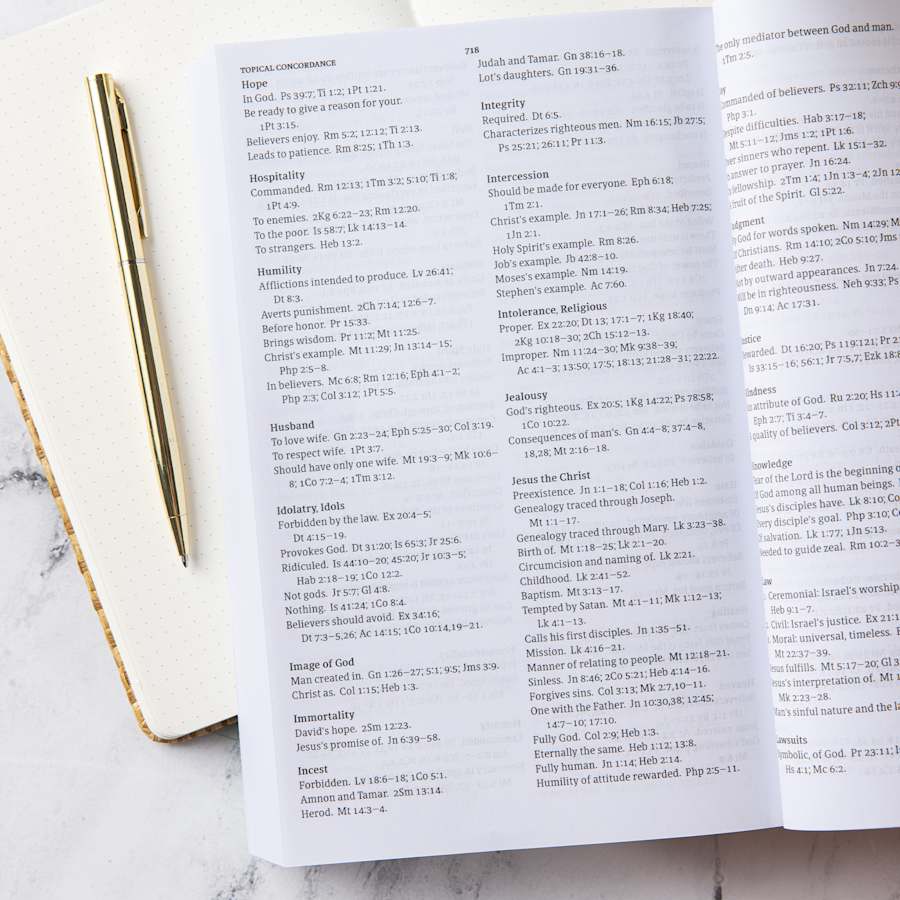 TOPICAL CONCORDANCE
718
Hope
In God. Ps 39:7; Ti 1:2; 1Pt 1:21.
Be ready to give a reason for your.
1Pt 3:15.
Believers enjoy. Rm 5:2; 12:12; Ti 2:13.
Leads to patience. Rm 8:25; 1Th 1:3.
Hospitality
Commanded. Rm 12:13; 1Tm 3:2; 5:10; Ti 1:8;
1Pt 4:9.
To enemies. 2Kg 6:22–23; Rm 12:20.
To the poor. Is 58:7; Lk 14:13–14.
To strangers. Heb 13:2.
Humility
Afflictions intended to produce. Lv 26:41;
Dt 8:3.
Averts punishment. 2Ch 7:14; 12:6–7.
Before honor. Pr 15:33.
Brings wisdom. Pr 11:2; Mt 11:25.
Christ's example. Mt 11:29; Jn 13:14–15;
Php 2:5–8.
In believers. Mc 6:8; Rm 12:16; Eph 4:1–2;
Php 2:3; Col 3:12; 1Pt 5:5.
Husband
To love wife. Gn 2:23–24; Eph 5:25–30; Col 3:19.
To respect wife. 1Pt 3:7.
Should have only one wife. Mt 19:3–9; Mk 10:6–
8; 1Co 7:2–4; 1Tm 3:12.
Idolatry, Idols
Forbidden by the law. Ex 20:4–5;
Dt 4:15–19.
Provokes God. Dt 31:20; Is 65:3; Jr 25:6.
Ridiculed. Is 44:10–20; 45:20; Jr 10:3–5;
Hab 2:18–19; 1Co 12:2.
Not gods. Jr 5:7; Gl 4:8.
Nothing. Is 41:24; 1Co 8:4.
Believers should avoid. Ex 34:16;
Dt 7:3–5,26; Ac 14:15; 1Co 10:14,19–21.
Image of God
Man created in. Gn 1:26–27; 5:1; 9:5; Jms 3:9.
Christ as. Col 1:15; Heb 1:3.
Immortality
David's hope. 2Sm 12:23.
Jesus's promise of. Jn 6:39–58.
Incest
Forbidden. Lv 18:6–18; 1Co 5:1.
Amnon and Tamar. 2Sm 13:14.
Herod. Mt 14:3–4.
Judah and Tamar. Gn 38:16–18.
Lot's daughters. Gn 19:31–36.
Integrity
Required. Dt 6:5.
Characterizes righteous men. Nm 16:15; Jb 27:5;
Ps 25:21; 26:11; Pr 11:3.
Intercession
Should be made for everyone. Eph 6:18;
1Tm 2:1.
Christ's example. Jn 17:1–26; Rm 8:34; Heb 7:25;
1Jn 2:1.
Holy Spirit's example. Rm 8:26.
Job's example. Jb 42:8–10.
Moses's example. Nm 14:19.
Stephen's example. Ac 7:60.
Intolerance, Religious
Proper. Ex 22:20; Dt 13; 17:1–7; 1Kg 18:40;
2Kg 10:18–30; 2Ch 15:12–13.
Improper. Nm 11:24–30; Mk 9:38–39;
Ac 4:1–3; 13:50; 17:5; 18:13; 21:28–31; 22:22.
Jealousy
God's righteous. Ex 20:5; 1Kg 14:22; Ps 78:58;
1Co 10:22.
Consequences of man's. Gn 4:4–8; 37:4–8,
18,28; Mt 2:16–18.
Jesus the Christ
Preexistence. Jn 1:1–18; Col 1:16; Heb 1:2.
Genealogy traced through Joseph.
Mt 1:1–17.
Genealogy traced through Mary. Lk 3:23–38.
Birth of. Mt 1:18–25; Lk 2:1–20.
Circumcision and naming of. Lk 2:21.
Childhood. Lk 2:41–52.
Baptism. Mt 3:13–17.
Tempted by Satan. Mt 4:1–11; Mk 1:12–13;
Lk 4:1–13.
Calls his first disciples. Jn 1:35–51.
Mission. Lk 4:16–21.
Manner of relating to people. Mt 12:18–21.
Sinless. Jn 8:46; 2Co 5:21; Heb 4:14–16.
Forgives sins. Col 3:13; Mk 2:7,10–11.
One with the Father. Jn 10:30,38; 12:45;
14:7–10; 17:10.
Fully God. Col 2:9; Heb 1:3.
Eternally the same. Heb 1:12; 13:8.
Fully human. Jn 1:14; Heb 2:14.
Humility of attitude rewarded. Php 2:5–11.
only mediator between God and man.
1Tm 2:5.
of believers. Ps 32:11; Zch 9:
Php 3:1.
difficulties. Hab 3:17–18;
Mt 5:11–12; Jms 1:2; 1Pt 1:6.
sinners who repent. Lk 15:1–32.
answer to prayer. Jn 16:24.
fellowship. 2Tm 1:4; 1Jn 1:3–4; 2Jn 12
fruit of the Spirit. Gl 5:22.
God for words spoken. Nm 14:29;
Christians. Rm 14:10; 2Co 5:10; Jms
death. Heb 9:27.
by outward appearances. Jn 7:24.
be in righteousness. Neh 9:33; Ps
Dn 9:14; Ac 17:31.
Dt 16:20; Ps 119:121; Pr
Is 33:15–16; 56:1; Jr 7:5,7; Ezk 18:8
attribute of God. Ru 2:20; Hs 11:
Eph 2:7; Ti 3:4–7.
quality of believers. Col 3:12; 2Pt
of the Lord is the beginning
God among all human beings.
disciples have. Lk 8:10;
disciple's goal. Php 3:10;
salvation. Lk 1:77; 1Jn 5:13.
to guide zeal. Rm 10:2–
Ceremonial: Israel's worship
Heb 9:1–7.
Civil: Israel's justice. Ex 21:1
Moral: universal, timeless.
Mt 22:37–39.
fulfills. Mt 5:17–20; Gl 3:
interpretation of. Mt
Mk 2:23–28.
sinful nature and the
Lawsuits
Symbolic, of God. Pr 23:11;
Hs 4:1; Mc 6:2.